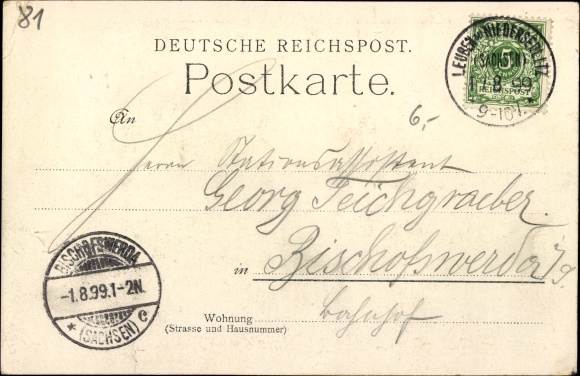 81
LEUBEN-NIEDERSEDLITZ
(SACHSEN)
1.8.99
9-10V.
5
REICHSPOST
DEUTSCHE REICHSPOST.
Postkarte.
6,-
An
Herrn Stationsassistent
Georg Teichgraeber
in Bischofswerda i/S.
Bahnhof
Wohnung
(Strasse und Hausnummer)
BISCHOFSWERDA
-1.8.99.1-2N.
* (SACHSEN) c